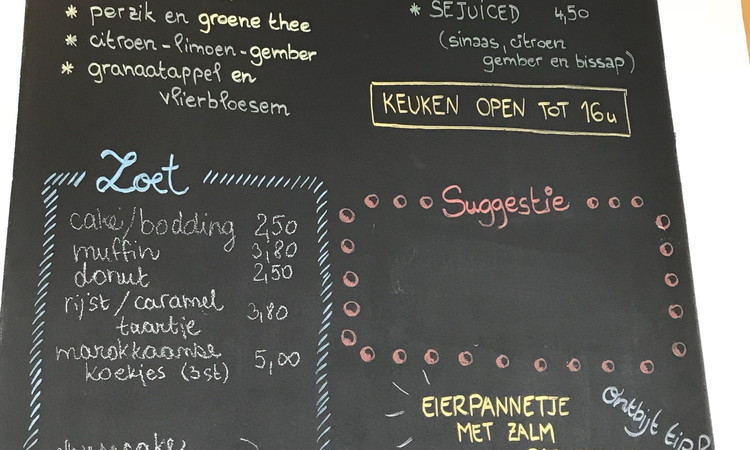 * perzik en groene thee
* citroen-limoen-gember
* granaatappel en
vlierbloesem
* SEJUICED 4,50
(sinaas, citroen
gember en bissap)
KEUKEN OPEN TOT 16u
Zoet
cake/bodding 2,50
muffin 3,80
donut 2,50
rijst/caramel
taartje 3,80
marokkaanse
koekjes (3st) 5,00
Suggestie
EIERPANNETJE
MET ZALM
Ontbijt tip